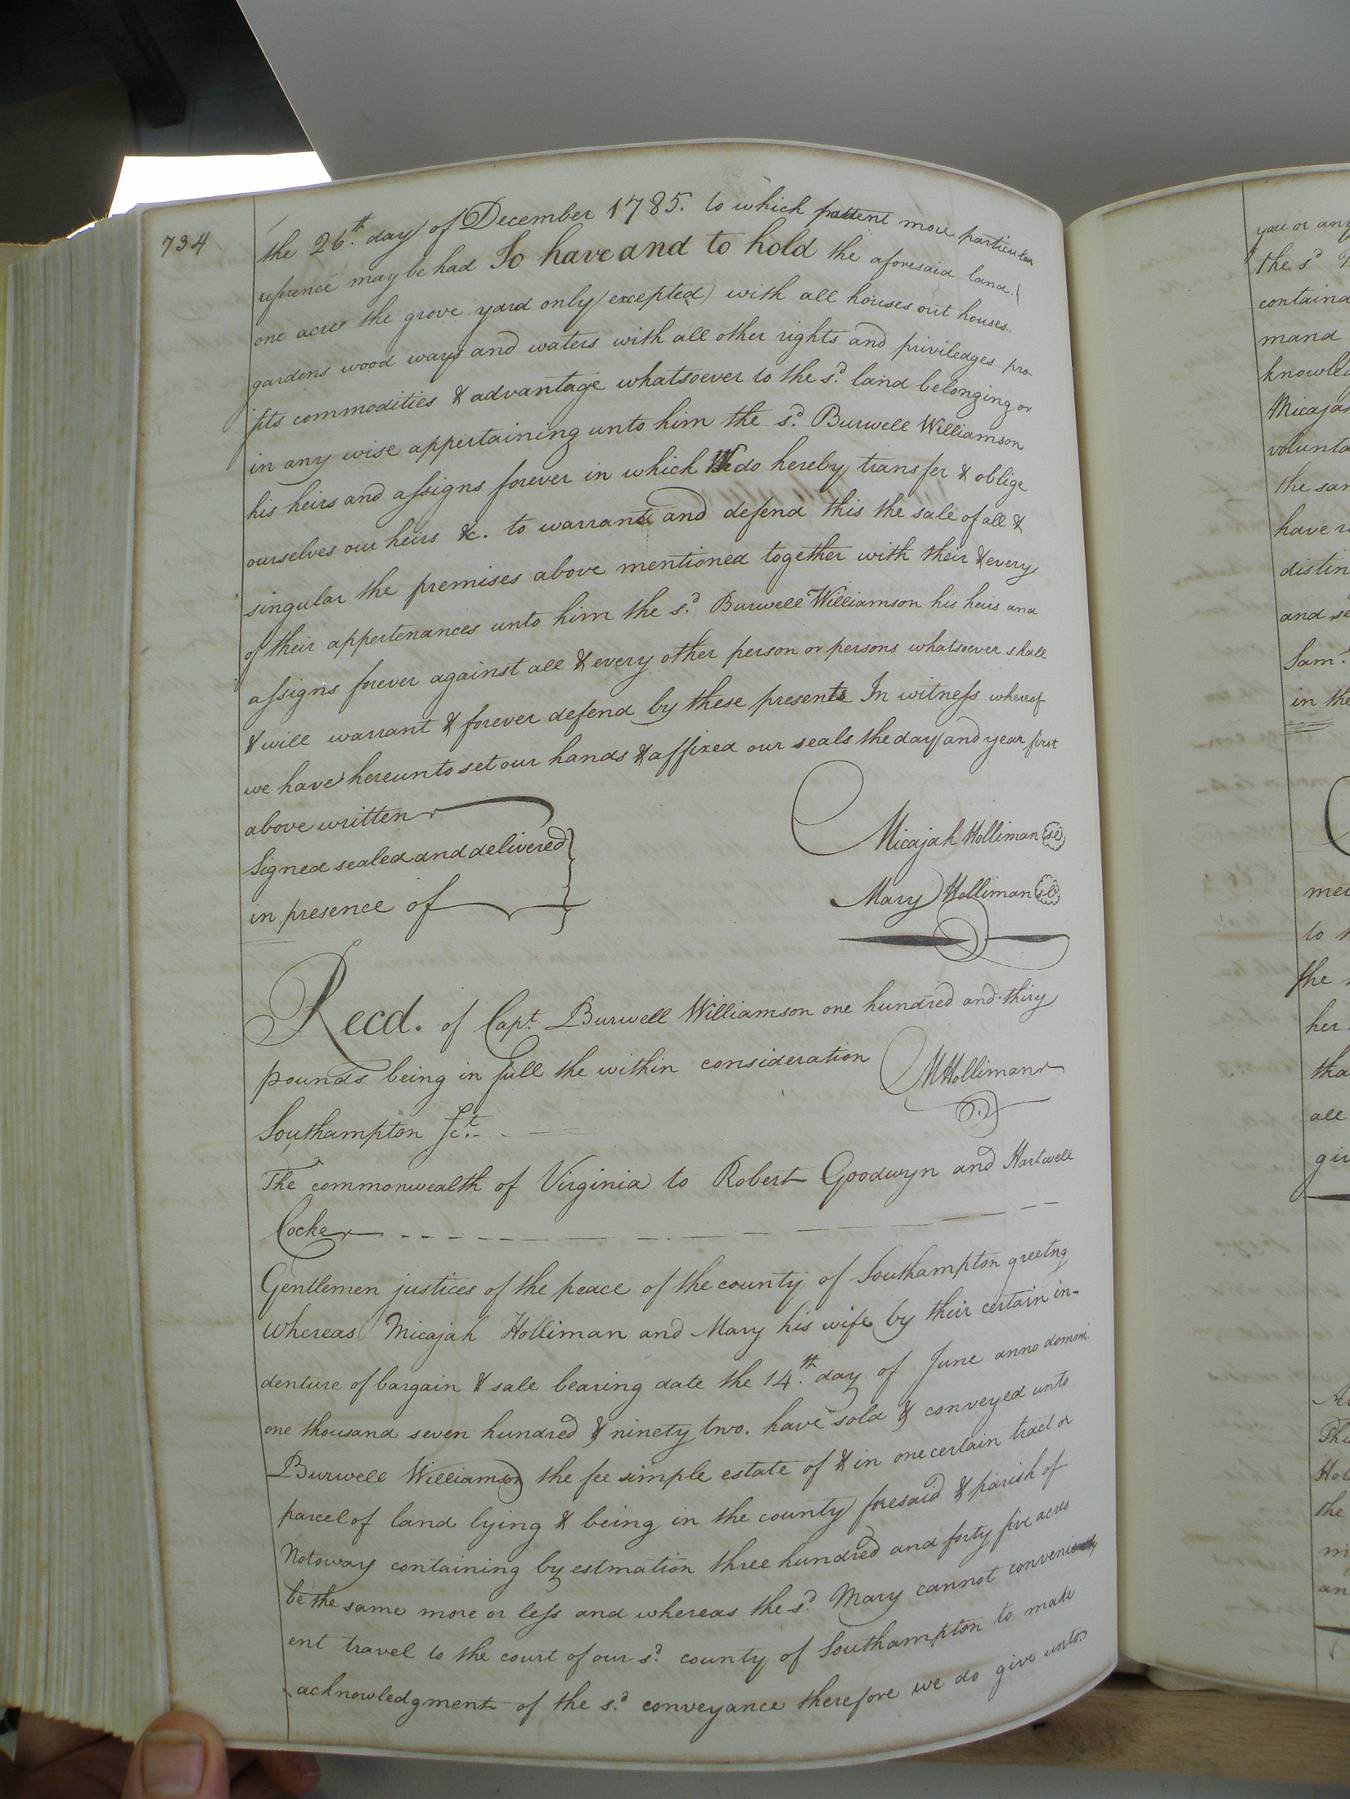 734
the 26th. day of December 1785. to which pattent more particular
refrence may be had To have and to hold the aforesaid land
one acre the grove yard only (excepted) with all houses out houses
gardens wood ways and waters with all other rights and priviledges pro-
fits commodities & advantage whatsoever to the sd. land belonging or
in any wise appertaining unto him the sd. Burwell Williamson
his heirs and assigns forever in which We do hereby transfer & oblige
ourselves our heirs &c. to warrant and defend this the sale of all &
singular the premises above mentioned together with their & every
of their appertenances unto him the sd. Burwell Williamson his heirs and
assigns forever against all & every other person or persons whatsoever shall
& will warrant & forever defend by these presents In witness whereof
we have hereunto set our hands & affixed our seals the day and year first
above written
Signed sealed and delivered
in presence of
Micajah Holliman
Mary Holliman
Recd. of Capt. Burwell Williamson one hundred and thiry
pounds being in full the within consideration
MHolliman
Southampton Sct.
The commonwealth of Virginia to Robert Goodwyn and Hartwell
Cocke
Gentlemen justices of the peace of the county of Southampton greetng
Whereas Micajah Holliman and Mary his wife by their certain in-
denture of bargain & sale bearing date the 14th. day of June anno domini
one thousand seven hundred & ninety two. have sold & conveyed unto
Burwell Williamson the fee simple estate of & in one certain tract or
parcel of land lying & being in the county foresaid & parish of
Notoway containing by estmation three hundred and forty five acres
be the same more or less and whereas the sd. Mary cannot conveni
ent travel to the court of our sd. county of Southampton to make
acknowledgment of the sd. conveyance therefore we do give unto
you or any
the sd
contain
mand
knowle
Micajah
volunta
the sam
have
distin
and se
Sam.
in the
me
to
the
her
tha
all
giv
The
Hol
the
an